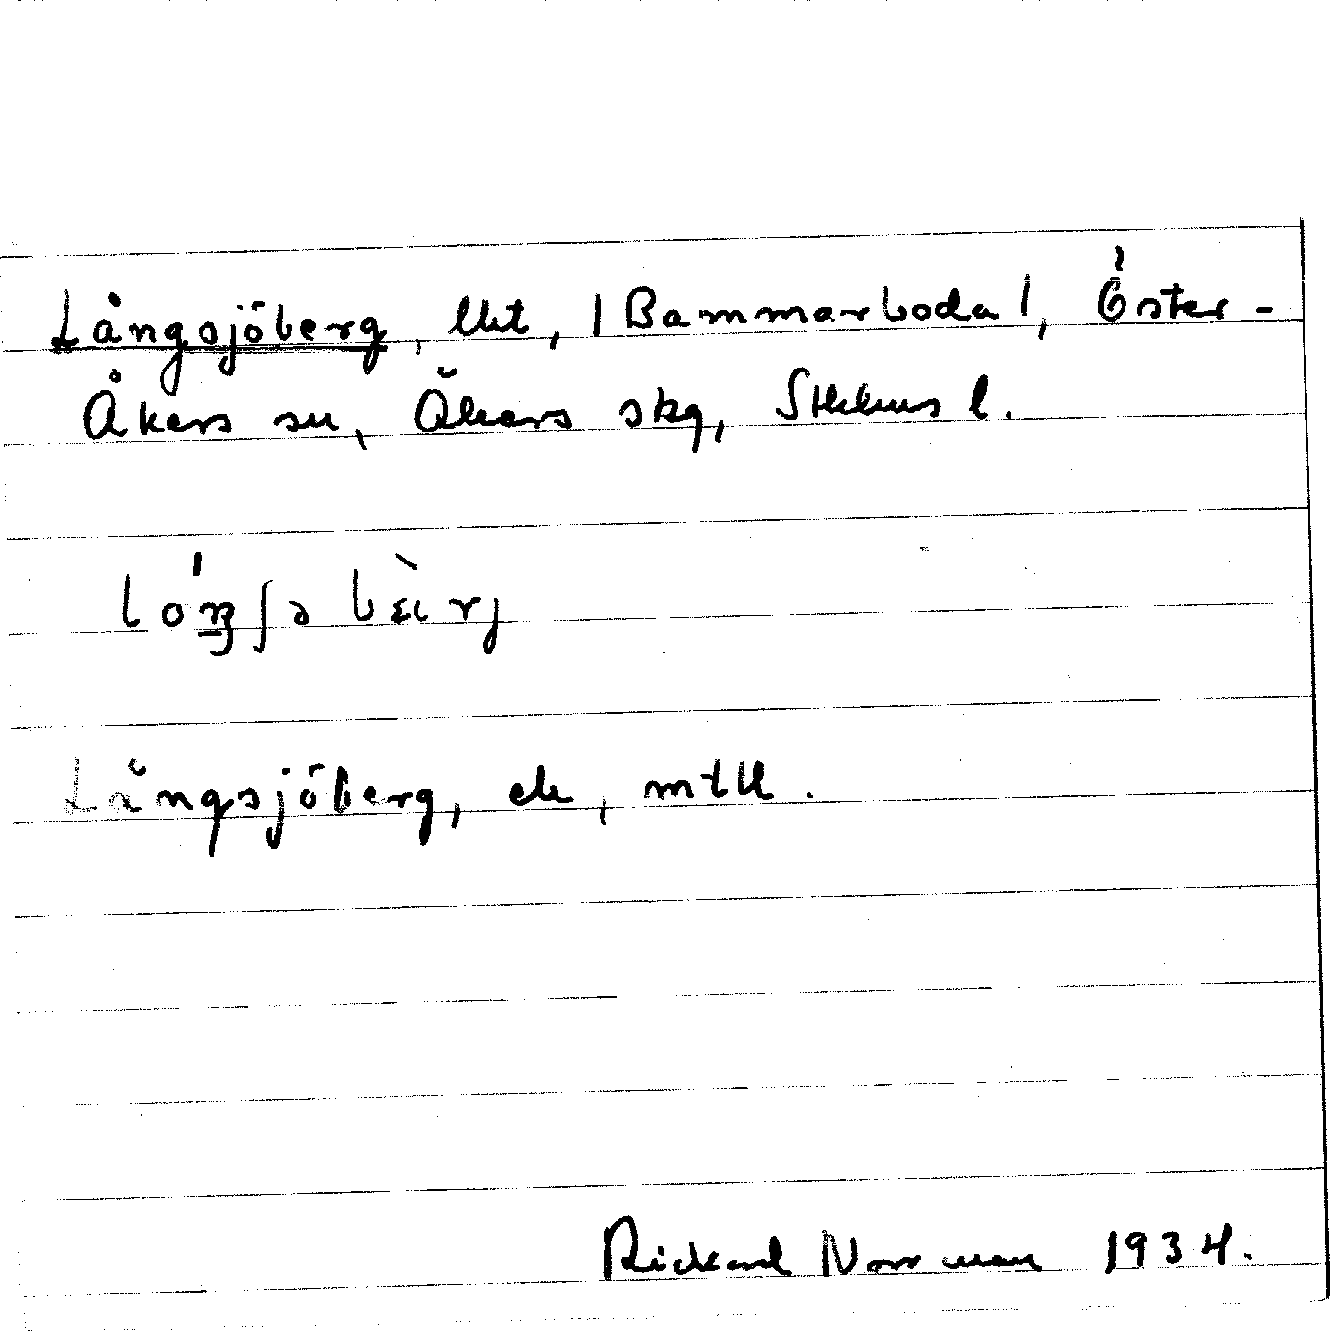 Långsjöberg, lht, / Bammarboda /, Öster-
Åkers sn, Åkers skg, Sthlms l.
Långsjöberg, ek, mtll.
Rickard Norrman 1934.